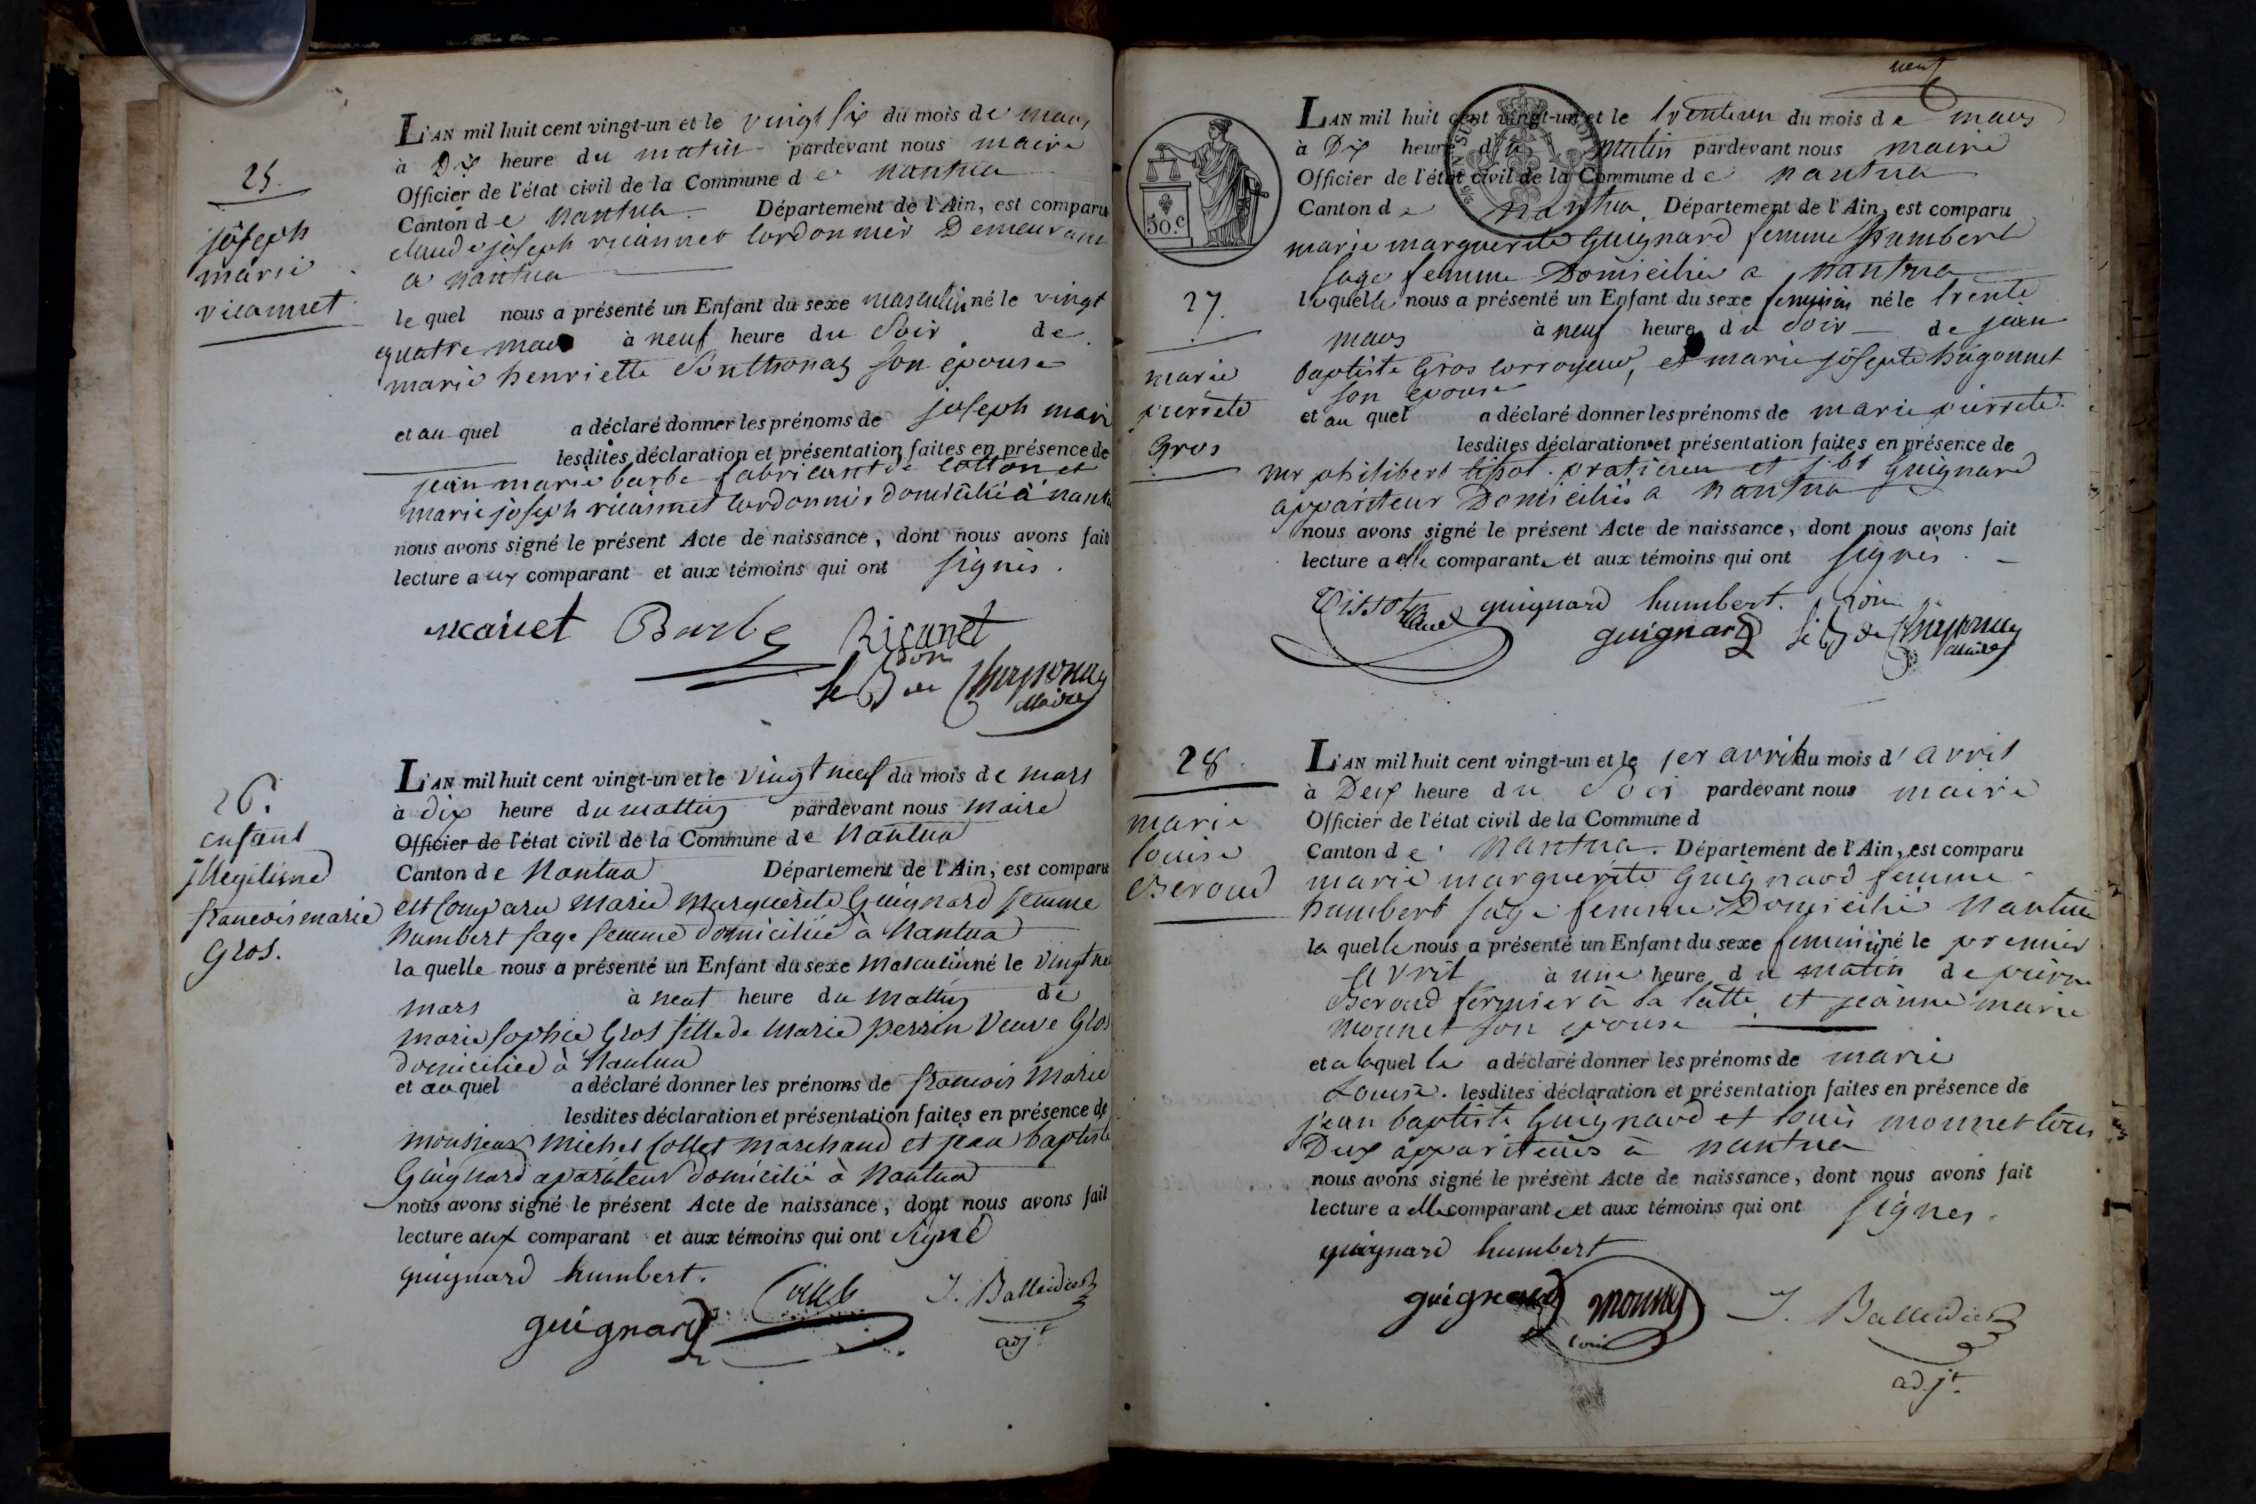 25.
joseph
marie
ricannet
L'AN mil huit cent vingt-un et le vingt six du mois de mars
à Dix heure du matin pardevant nous maire
Officier de l'état civil de la Commune de nantua
Canton de nantua. Département de l'Ain, est comparu
claude joseph ricannet cordonnier Demeurant
a nantua
le quel nous a présenté un Enfant du sexe masculin né le vingt
quatre mars à neuf heure du soir de
marie henriette Sonthonas son épouse
et au quel a déclaré donner les prénoms de joseph marie
lesdites déclaration et présentation faites en présence de
jean marie barbe fabricant de cotton et
marie joseph ricannet cordonnier domicilié à nantua
nous avons signé le présent Acte de naissance, dont nous avons fait
lecture aux comparant et aux témoins qui ont signés.
Barbe Ricanet
le Bon de
Maire
26.
enfant
illegitime
francois marie
Gros.
L'AN mil huit cent vingt-un et le vingt neuf du mois de mars
à dix heure du mattin pardevant nous maire
Officier de l'état civil de la Commune de Nantua
Canton de Nantua Département de l'Ain, est comparu
est comparu marie Marguerite Guignard femme
humbert sage femme domiciliée à Nantua
la quelle nous a présenté un Enfant du sexe Masculin né le vingt neuf
mars à neuf heure du mattin de
marie Sophie Gros fille de Marie perrin Veuve Gros
domiciliée à Nantua
et au quel a déclaré donner les prénoms de francois Marie
lesdites déclaration et présentation faites en présence de
monsieur michel Collet marchand et jean baptiste
Guignard apariteur domicilié à Nantua
nous avons signé le présent Acte de naissance, dont nous avons fait
lecture aux comparant et aux témoins qui ont signé
guignard humbert.
guignard J. Balleidier
adjt
neuf
50.c
27.
marie
pierrete
Gros
L'AN mil huit cent vingt-un et le trenteun du mois de mars
à Dix heure du matin pardevant nous maire
Officier de l'état civil de la Commune de nantua
Canton de nantua. Département de l'Ain, est comparu
marie marguerite Guignard femme humbert
sage femme Domiciliée a nantua
laquelle nous a présenté un Enfant du sexe feminin né le trente
mars à neuf heure du soir de jean
baptiste Gros corroyeur, et marie josepte hugonnet
son epouse
et au quel a déclaré donner les prénoms de marie pierrete.
lesdites déclaration et présentation faites en présence de
mr philibert tissot praticien et j. bt Guignard
appariteur Domiciliés a nantua
nous avons signé le présent Acte de naissance, dont nous avons fait
lecture a elle comparante et aux témoins qui ont signés.
Tissot guignard humbert.
guignard le Bon de
Maire
28.
marie
louise
Beroud
L'AN mil huit cent vingt-un et le 1er avril du mois d'avril
à Deux heure du soir pardevant nous maire
Officier de l'état civil de la Commune d
Canton de nantua. Département de l'Ain, est comparu
marie marguerite Guignard femme
humbert sage femme Domicilié nantua
la quelle nous a présenté un Enfant du sexe feminin né le premier
avril à une heure du matin de pierre
Beroud fermier à la latte et jeanne marie
monnet son epouse
et a laquel le a déclaré donner les prénoms de marie
Louise. lesdites déclaration et présentation faites en présence de
jean baptiste Guignard et louis monnet tous
Deux appariteurs à nantua
nous avons signé le présent Acte de naissance, dont nous avons fait
lecture a elle comparante et aux témoins qui ont signes.
guignard humbert
guignard monnet J. Balleidier
louis
adjt.